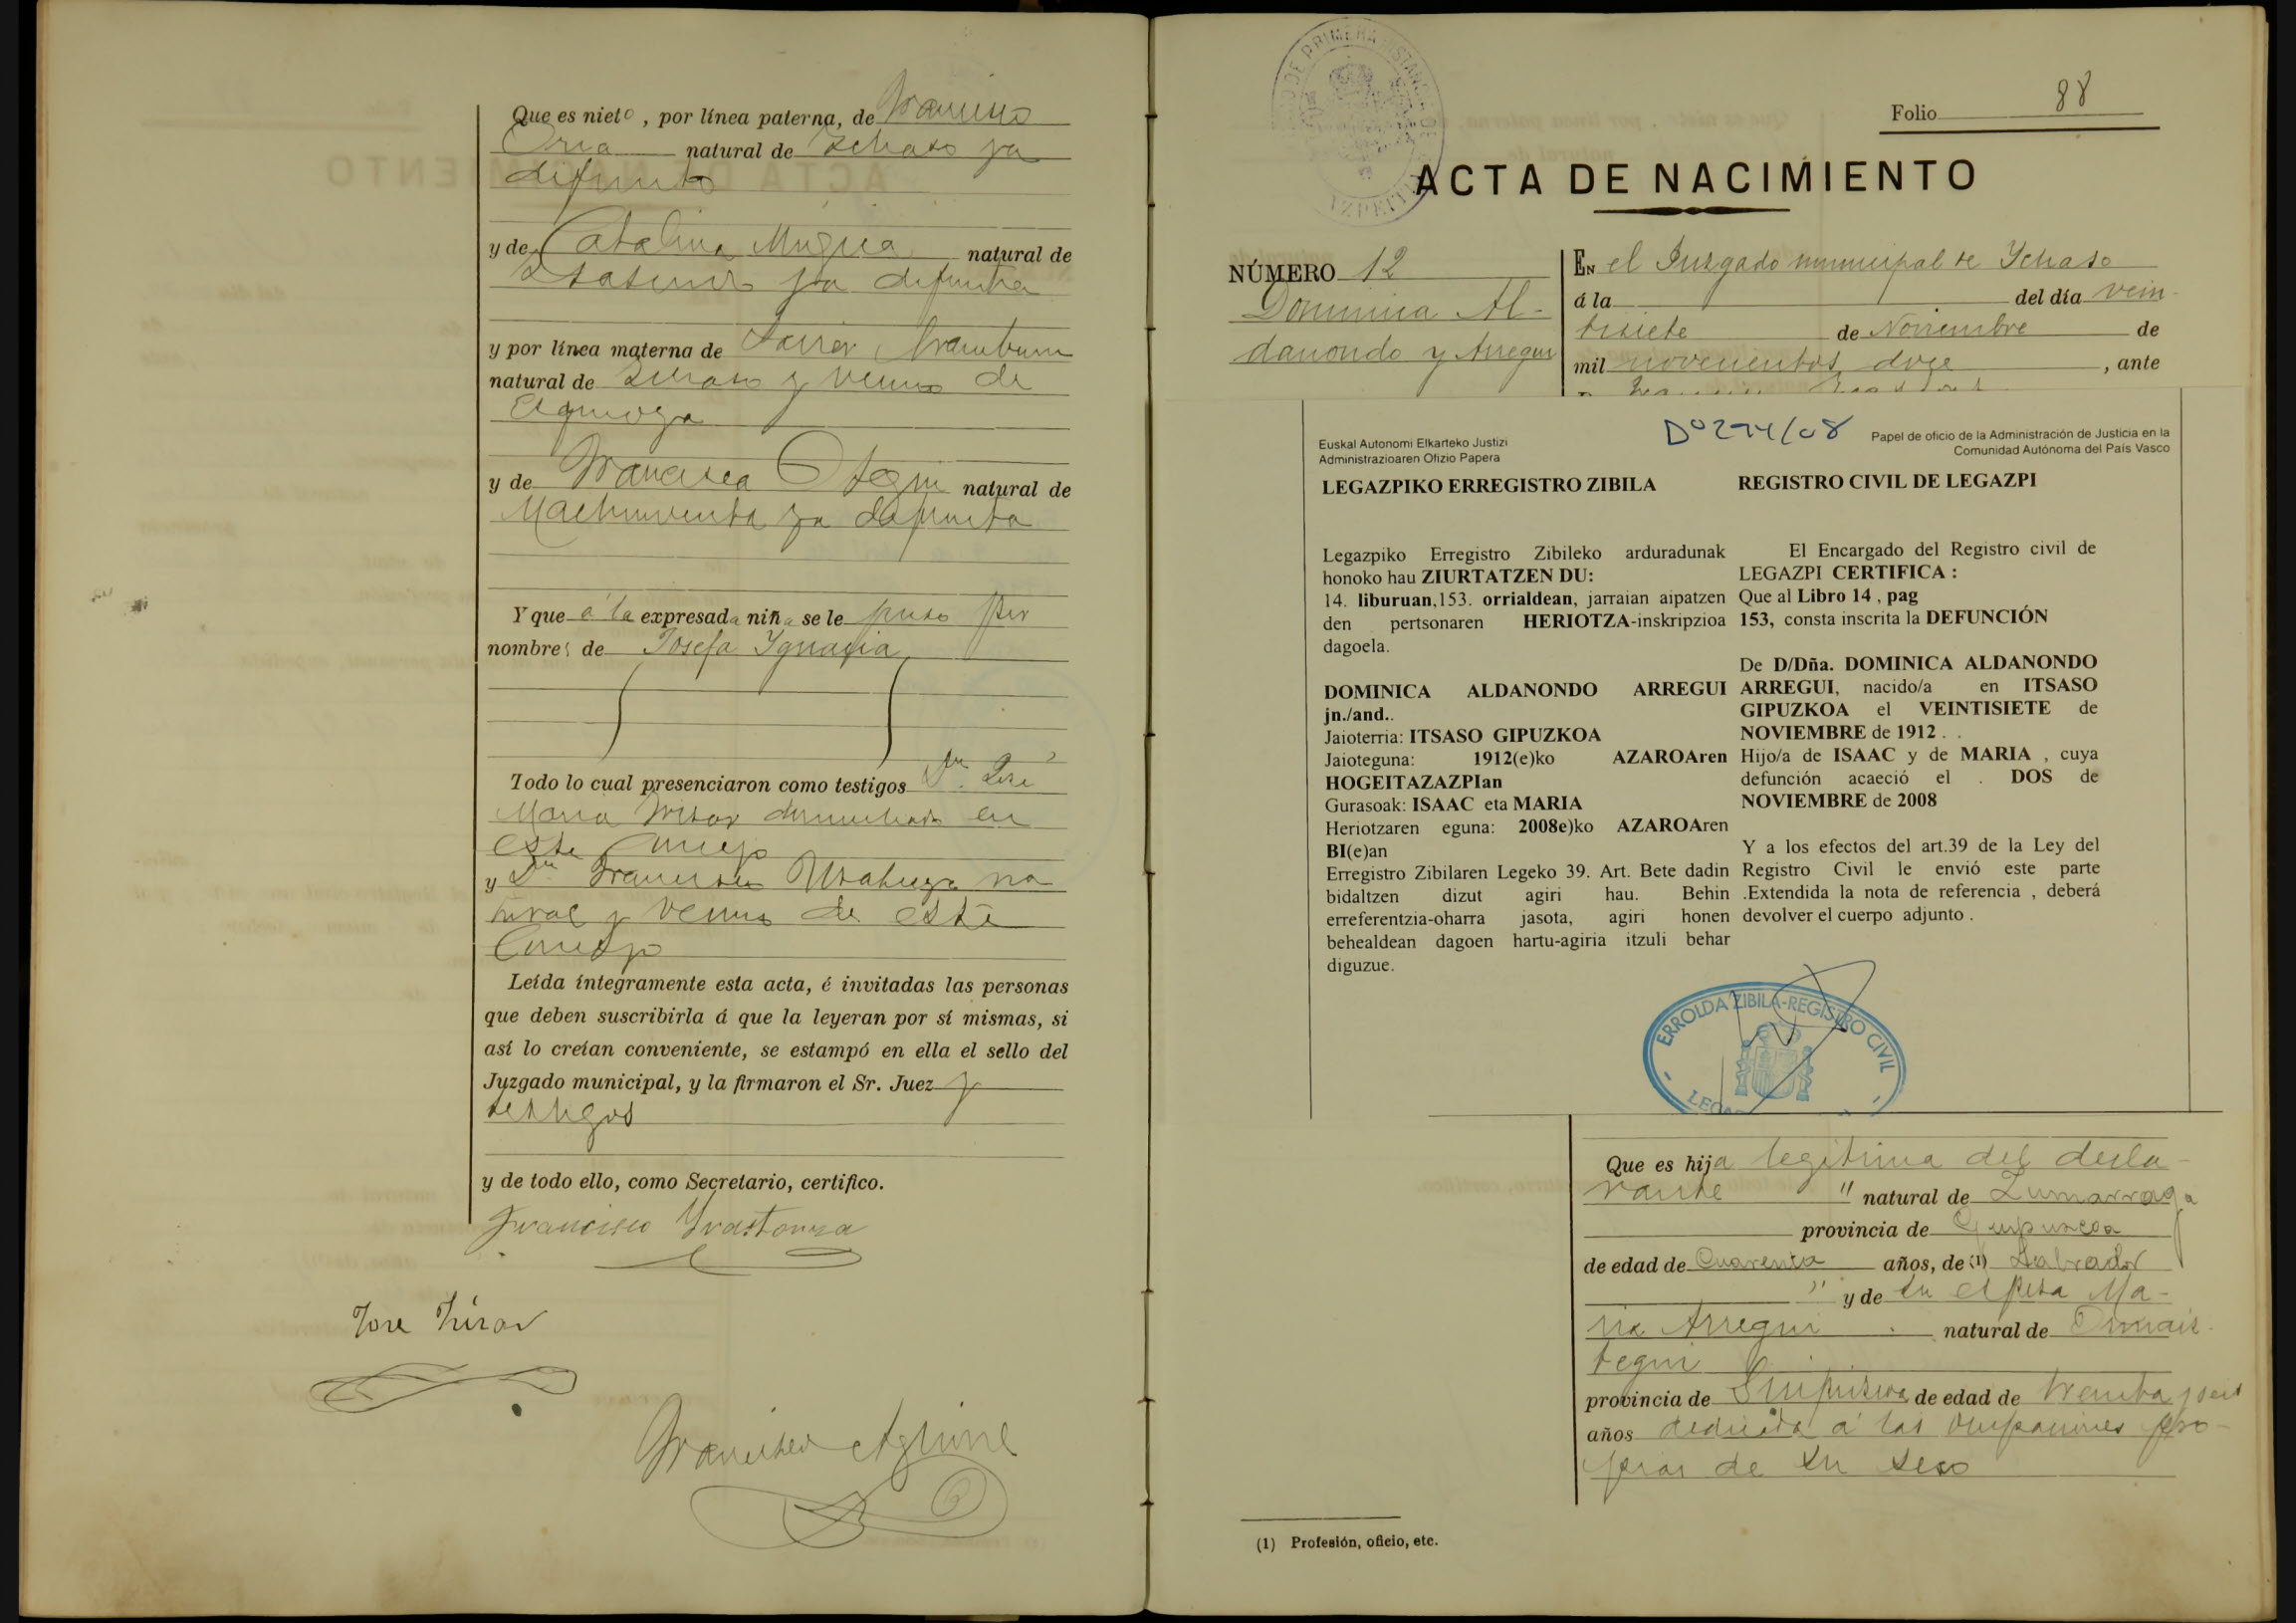 Que es nieto, por línea paterna, de Francisco
Oria natural de Ichaso ya
difunto
y de Catalina Mugica natural de
Ataun ya difunta
y por línea materna de Javier Aramburu
natural de Ichaso y vecino de
Ezquioga
y de Francisca Otegui natural de
Machinventa ya difunta
Y que á la expresada niña se le puso por
nombres de Josefa Ygnacia
Todo lo cual presenciaron como testigos Dn. José
Maria domiciliado en
este Concejo
y Dn Francisco na
tural y vecino de este
Concejo
Leída íntegramente esta acta, é invitadas las personas
que deben suscribirla á que la leyeran por sí mismas, si
así lo creían conveniente, se estampó en ella el sello del
Juzgado municipal, y la firmaron el Sr. Juez y
testigos
y de todo ello, como Secretario, certifico.
Francisco Yrastorza
Jose
Francisco Aguirre
Folio 88
ACTA DE NACIMIENTO
NÚMERO 12
Dominica Al-
danondo y Arregui
EN el Juzgado municipal de Ychaso
á la del día vein-
tisiete de Noviembre de
mil novecientos doce, ante
Dº 274/08
Euskal Autonomi Elkarteko Justizi
Administrazioaren Ofizio Papera
Papel de oficio de la Administración de Justicia en la
Comunidad Autónoma del País Vasco
LEGAZPIKO ERREGISTRO ZIBILA
Legazpiko Erregistro Zibileko arduradunak
honoko hau ZIURTATZEN DU:
14. liburuan,153. orrialdean, jarraian aipatzen
den pertsonaren HERIOTZA-inskripzioa
dagoela.
DOMINICA ALDANONDO ARREGUI
jn./and..
Jaioterria: ITSASO GIPUZKOA
Jaioteguna: 1912(e)ko AZAROAren
HOGEITAZAZPIan
Gurasoak: ISAAC eta MARIA
Heriotzaren eguna: 2008e)ko AZAROAren
BI(e)an
Erregistro Zibilaren Legeko 39. Art. Bete dadin
bidaltzen dizut agiri hau. Behin
erreferentzia-oharra jasota, agiri honen
behealdean dagoen hartu-agiria itzuli behar
diguzue.
REGISTRO CIVIL DE LEGAZPI
El Encargado del Registro civil de
LEGAZPI CERTIFICA :
Que al Libro 14 , pag
153, consta inscrita la DEFUNCIÓN
De D/Dña. DOMINICA ALDANONDO
ARREGUI, nacido/a en ITSASO
GIPUZKOA el VEINTISIETE de
NOVIEMBRE de 1912 . .
Hijo/a de ISAAC y de MARIA , cuya
defunción acaeció el . DOS de
NOVIEMBRE de 2008
Y a los efectos del art.39 de la Ley del
Registro Civil le envió este parte
.Extendida la nota de referencia , deberá
devolver el cuerpo adjunto .
ERROLDA ZIBILA-REGISTRO CIVIL
Que es hija legitima del decla-
rante " natural de Zumarraga
provincia de Guipuzcoa
de edad de Cuarenta años, de (1) Labrador
" y de su esposa Ma-
ria Arregui natural de Ormaiz-
tegui
provincia de Guipuzcoa de edad de treinta y seis
años dedicada á las ocupaciones pro-
pias de su sexo
(1) Profesión, oficio, etc.